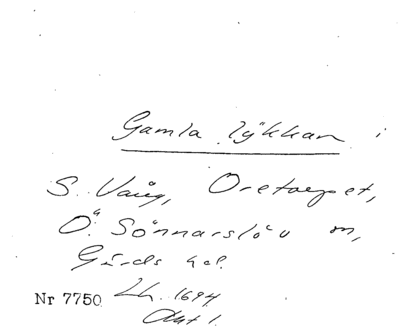 Gamla lÿkkan i
S. Vång, Oretorpet,
Ö. Sönnarslöv m,
Gärds hd.
Nr 7750 Lh. 1694
Akt 1.